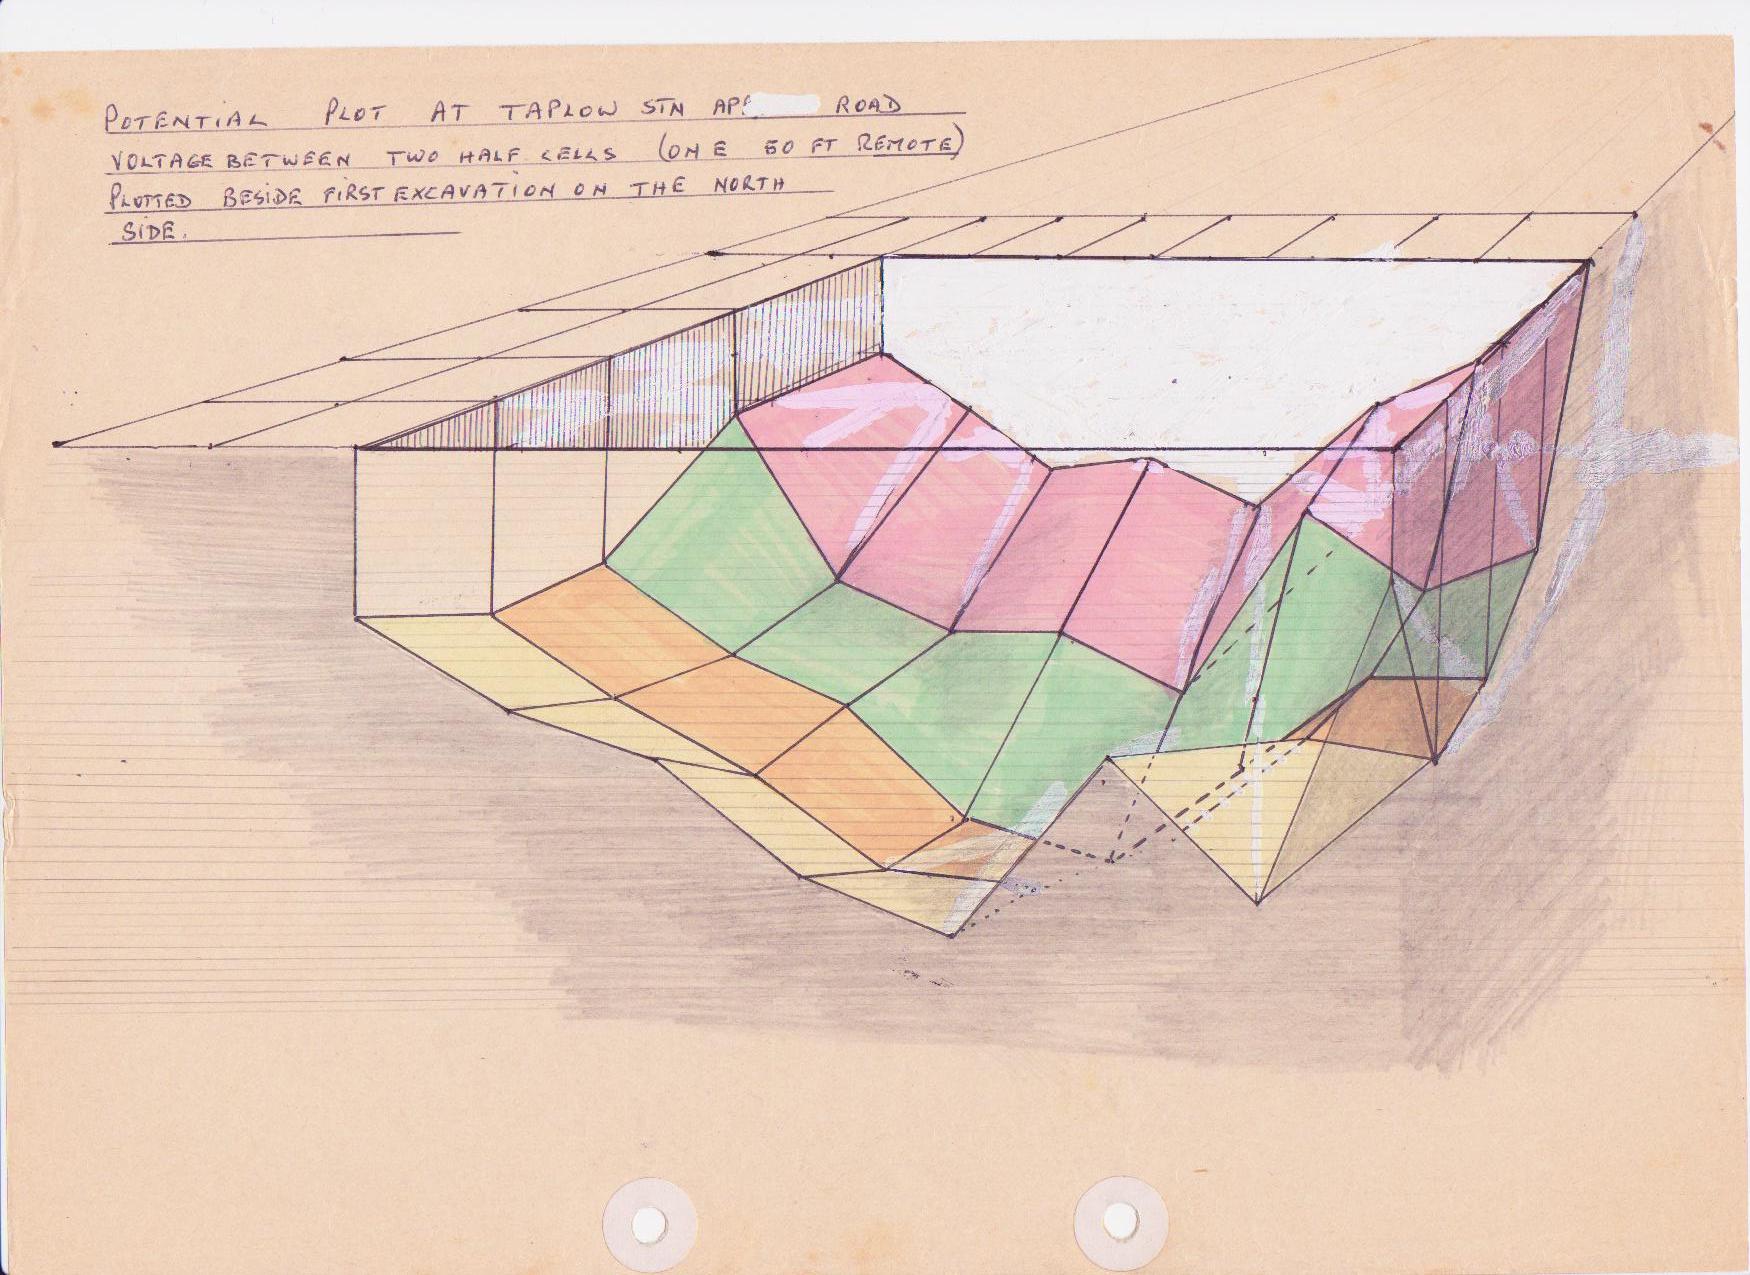 POTENTIAL PLOT AT TAPLOW STN ROAD
VOLTAGE BETWEEN TWO HALF CELLS (ONE 50 FT REMOTE)
PLOTTED BESIDE FIRST EXCAVATION ON THE NORTH
SIDE.